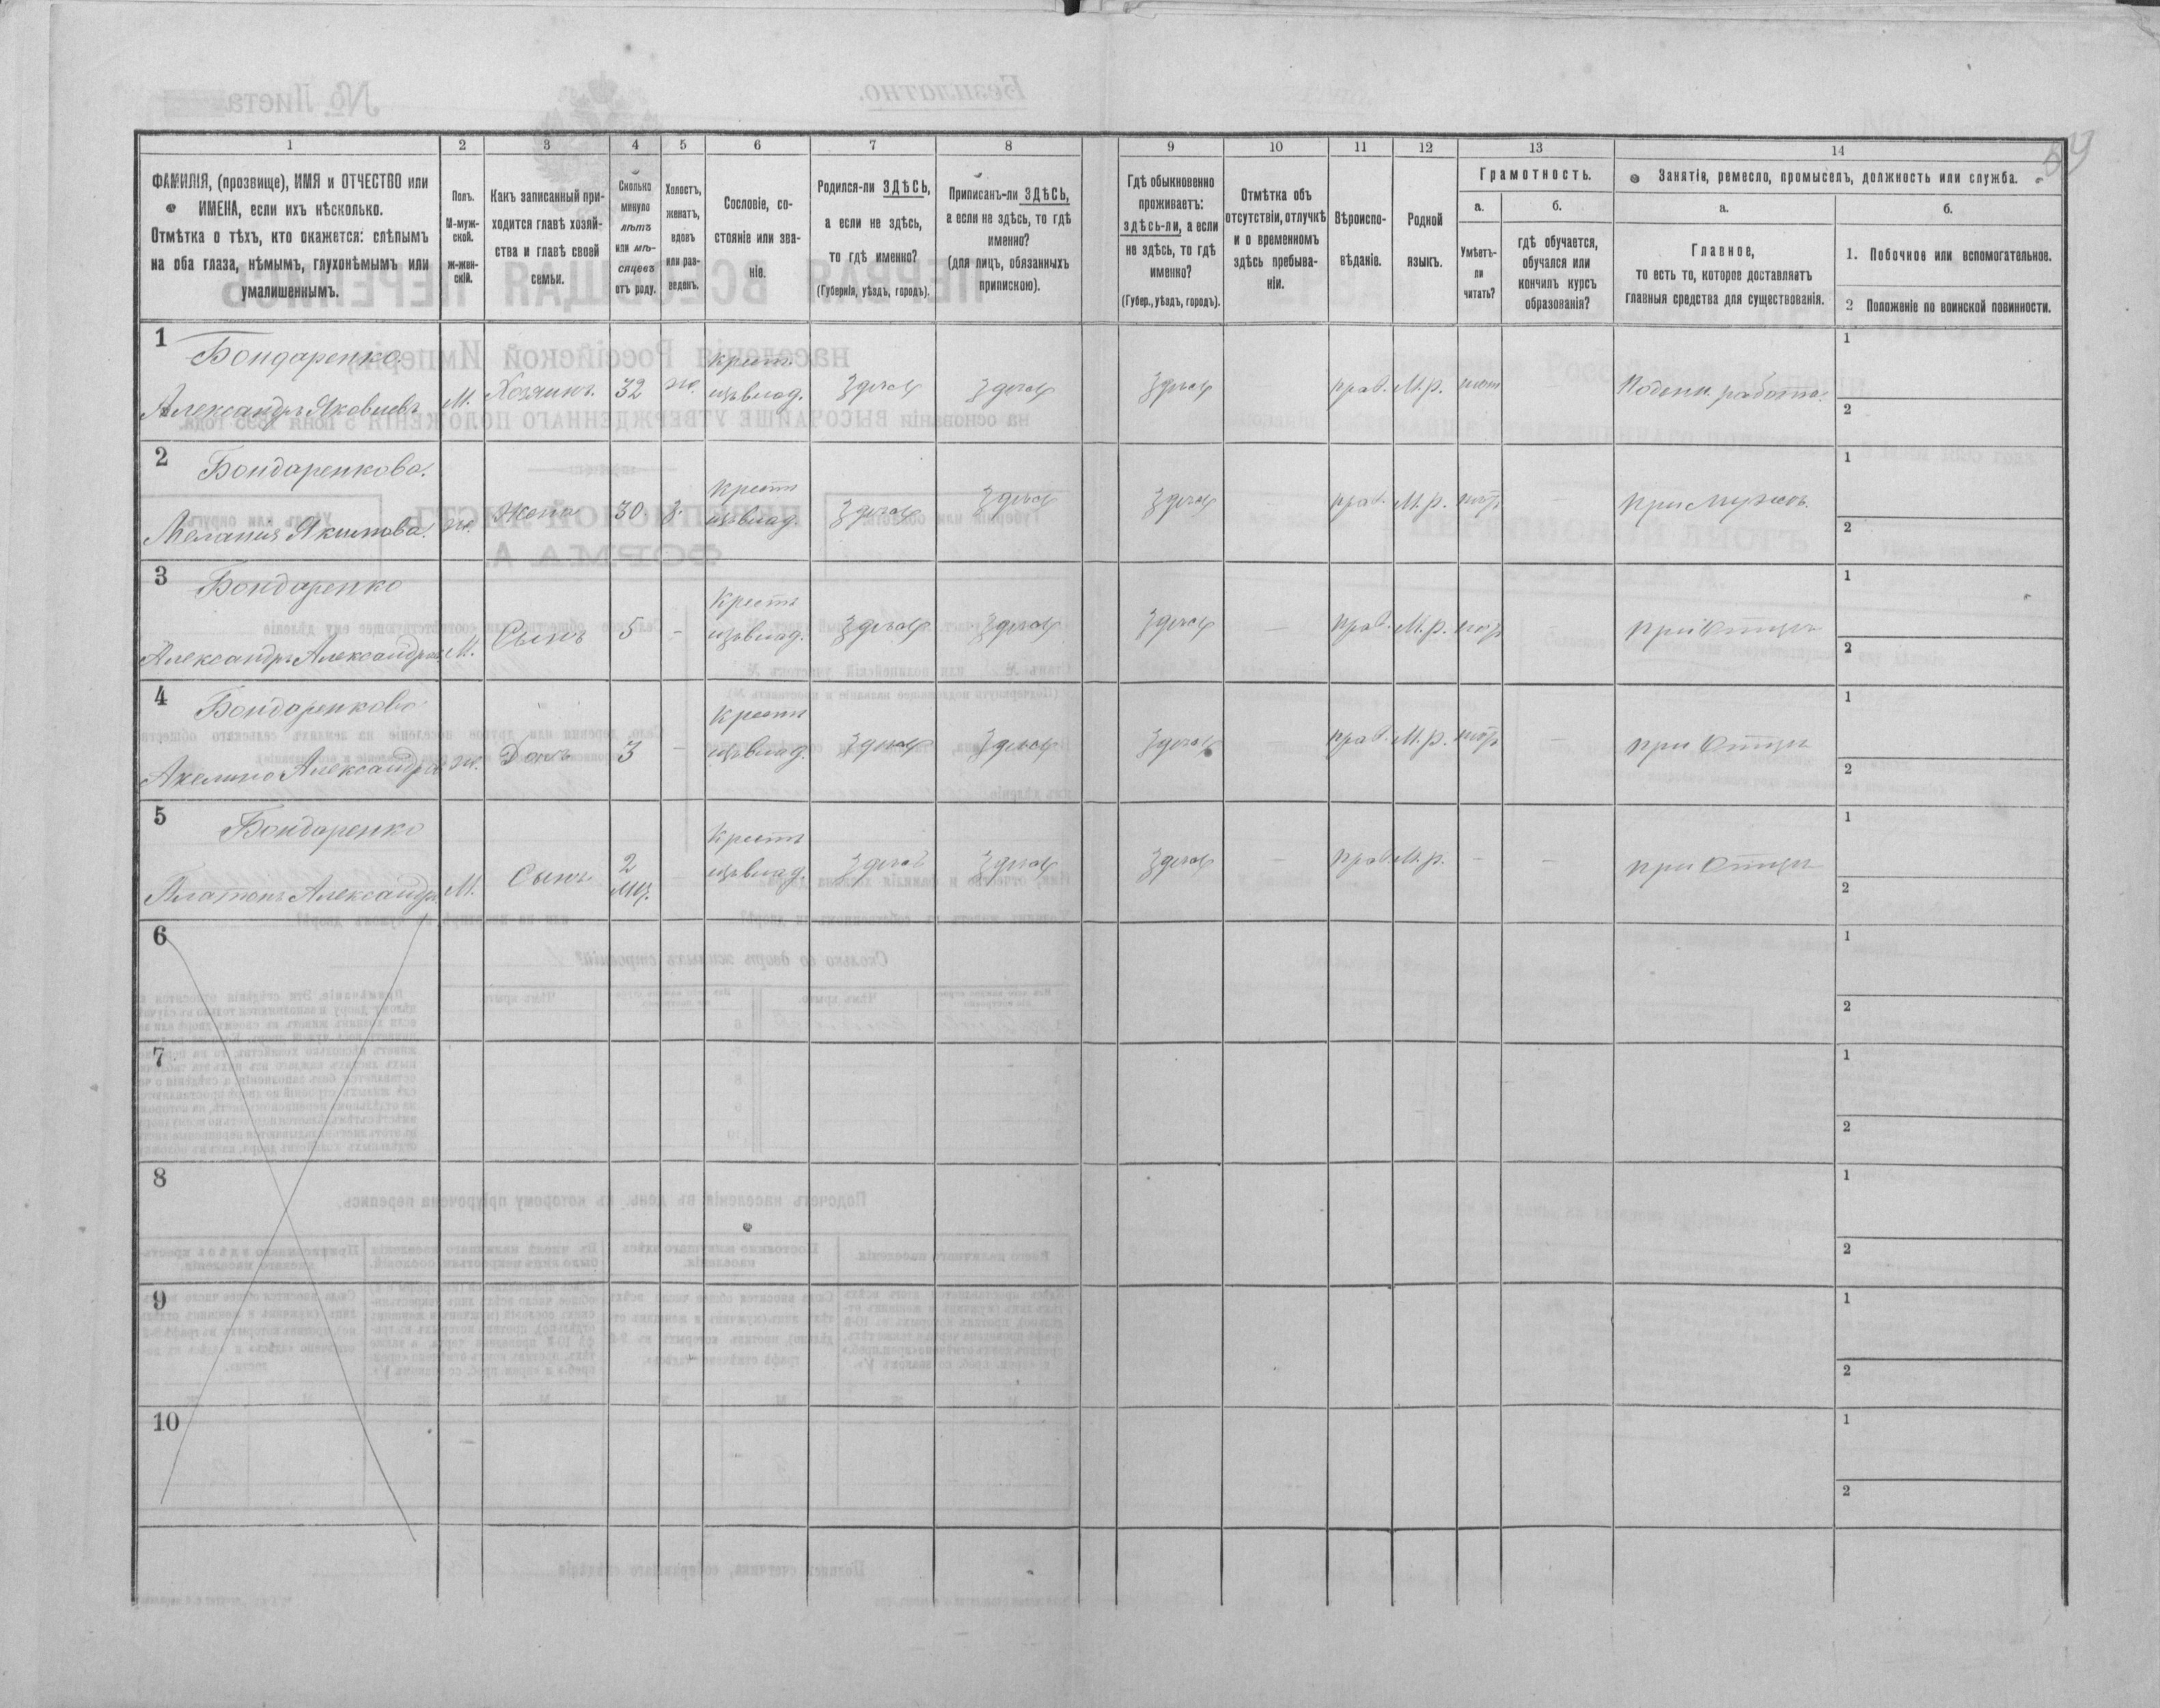 64
1 2 3 4 5 6 7 8 9 10 11 12 13 14
ФАМИЛІЯ, (прозвище), ИМЯ и ОТЧЕСТВО или
ИМЕНА, если ихъ нѣсколько.
Отмѣтка о тѣхъ, кто окажется: слѣпымъ
на оба глаза, нѣмымъ, глухонѣмымъ или
умалишеннымъ.
Полъ.
М-муж-
ской.
ж-жен-
скій.
Какъ записанный при-
ходится главѣ хозяй-
ства и главѣ своей
семьи.
Сколько
минуло
лѣтъ
или мѣ-
сяцевъ
отъ роду.
Холостъ,
женатъ,
вдовъ
или раз-
веденъ.
Сословіе, со-
стояніе или зва-
ніе.
Родился-ли ЗДѢСЬ,
а если не здѣсь,
то гдѣ именно?
(Губернія, уѣздъ, городъ).
Приписанъ-ли ЗДѢСЬ,
а если не здѣсь, то гдѣ
именно?
(для лицъ, обязанныхъ
припискою).
Гдѣ обыкновенно
проживаетъ:
здѣсь-ли, а если
не здѣсь, то гдѣ
именно?
(Губер., уѣздъ, городъ).
Отмѣтка объ
отсутствіи, отлучкѣ
и о временномъ
здѣсь пребыва-
ніи.
Вѣроиспо-
вѣданіе.
Родной
языкъ.
Грамотность.
а.
Умѣетъ-
ли
читать?
б.
гдѣ обучается,
обучался или
кончилъ курсъ
образованія?
Занятія, ремесло, промыселъ, должность или служба.
а.
Главное,
то есть то, которое доставляетъ
главныя средства для существованія.
б.
1. Побочное или вспомогательное.
2 Положеніе по воинской повинности.
1 Бондаренко 1
Александръ Яковлевъ М. Хозяинъ. 32 ж. Крест. Здесь Здесь Здесь прав. М.р. нетъ Поденн. работа.
2
2 Бондаренкова. 1
Меланія Якимова. ж. Жена 30 З. Крест. Здесь Здесь Здесь прав. М.р. нетъ при мужъ.
2
3 Бондаренко 1
Александръ Александр. М. Сынъ 5 - Крест. Здесь Здесь Здесь — прав. М.р. нетъ при отцъ
2
4 Бондаренкова 1
Акелина Александр. ж. Дочь 3 - Крест. Здесь Здесь Здесь прав. М.р. нетъ — при отцъ
2
5 Бондаренко 1
Платонъ Александр. М. Сынъ 2 мц. - Крест. Здесь Здесь Здесь — прав. М.р. - - при отцъ
2
6 1
2
7 1
2
8 1
2
9 1
2
10 1
2